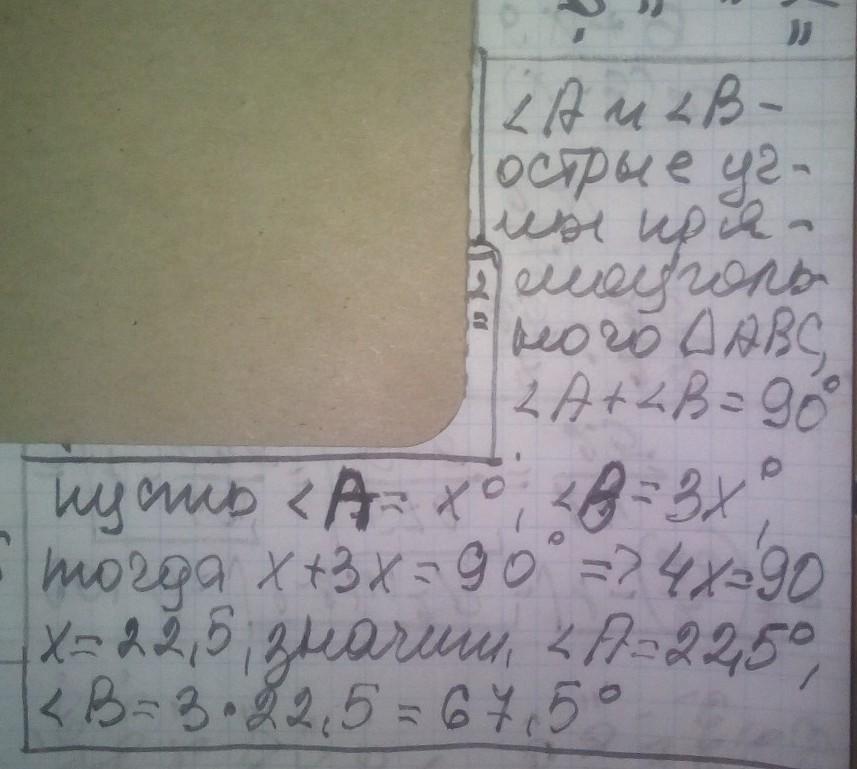 ∠A и ∠B -
острые уг-
лы пря-
моуголь-
ного △ABC,
∠A+∠B=90°
пусть ∠A= x°, ∠B=3x°,
тогда x+3x=90° => 4x=90
x=22,5, значит, ∠A=22,5°,
∠B=3·22,5=67,5°